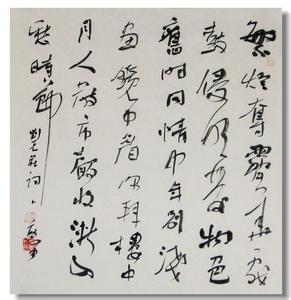 繁燈奪霽華戲
鼓侵明發物色
舊時同情中年別淺
畫鏡中眉深拜樓中
月人散市聲收漸入
愁時節
劉克莊詞